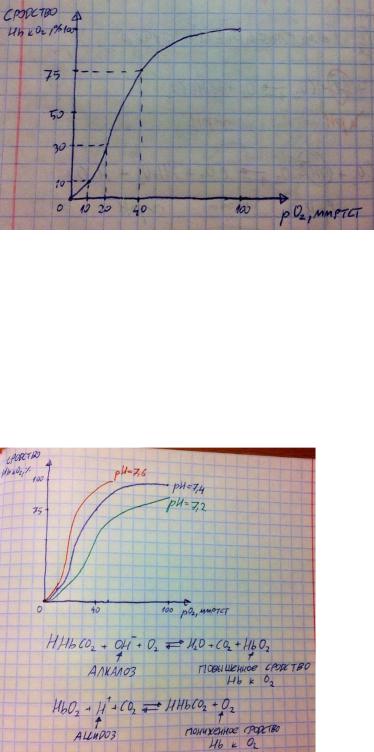 СРОДСТВО
Hb к O₂, %
75
50
30
10
0 10 20 40 100
pO₂, ММРТСТ
СРОДСТВО
Hb к O₂, %
pH=7,6
100
pH=7,4
75
pH=7,2
0 40 100
pO₂, ММРТСТ
HHbCO₂ + OH⁻ + O₂ ⇌ H₂O + CO₂ + HbO₂
АЛКАЛОЗ ПОВЫШЕННОЕ СРОДСТВО
Hb к O₂
HbO₂ + H⁺ + CO₂ ⇌ HHbCO₂ + O₂
АЦИДОЗ ПОНИЖЕННОЕ СРОДСТВО
Hb к O₂